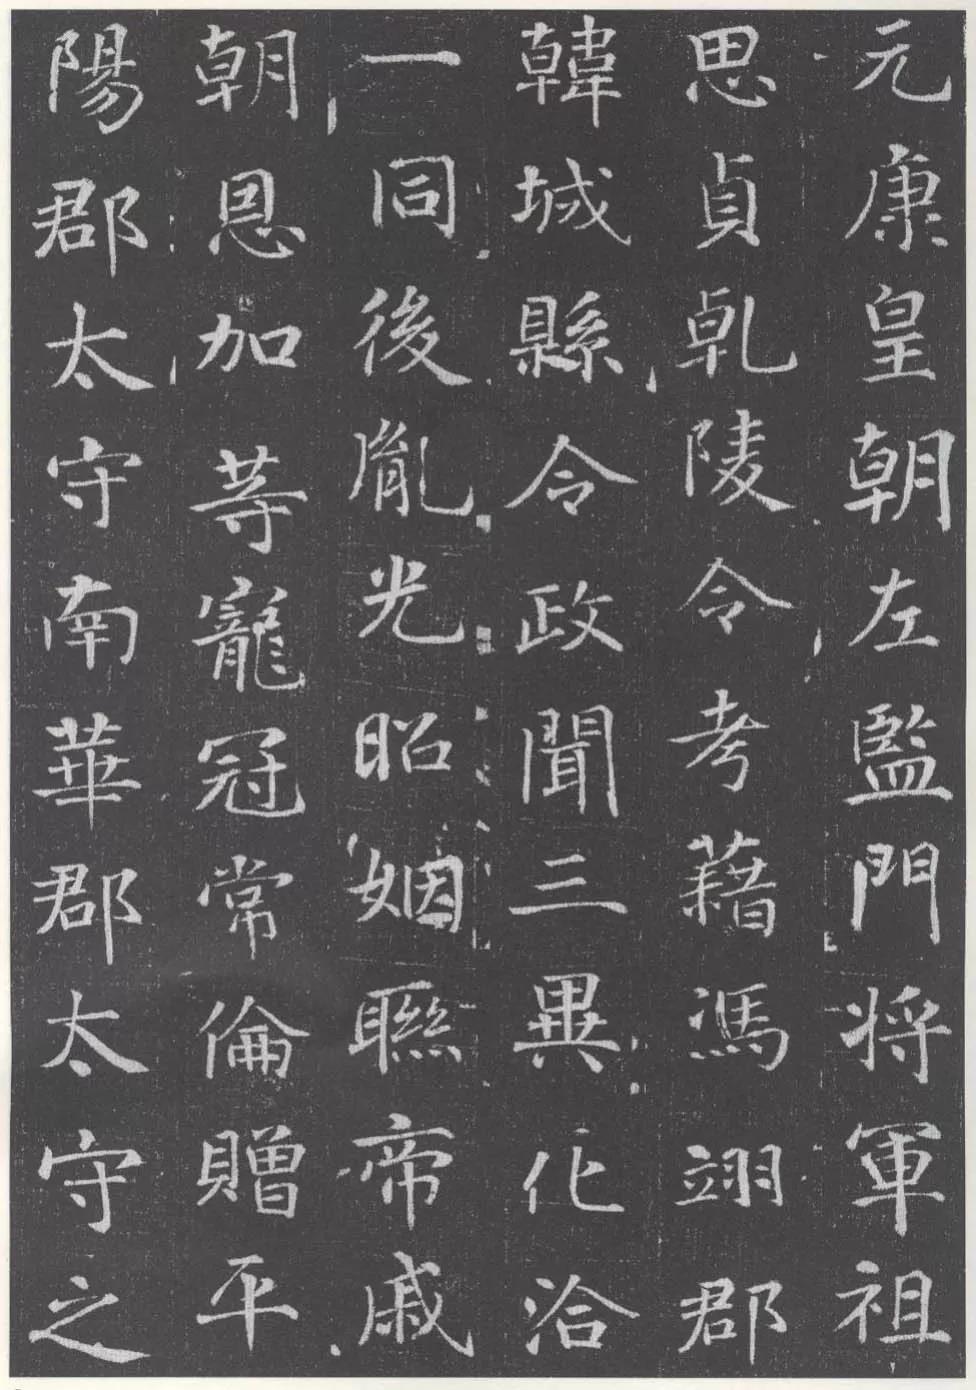 元康皇朝左監門將軍祖
思貞乹陵令考藉馮翊郡
韓城縣令政聞三異化洽
一同後胤光昭姻聯帝戚
朝恩加等寵冠常倫贈平
陽郡太守南華郡太守之